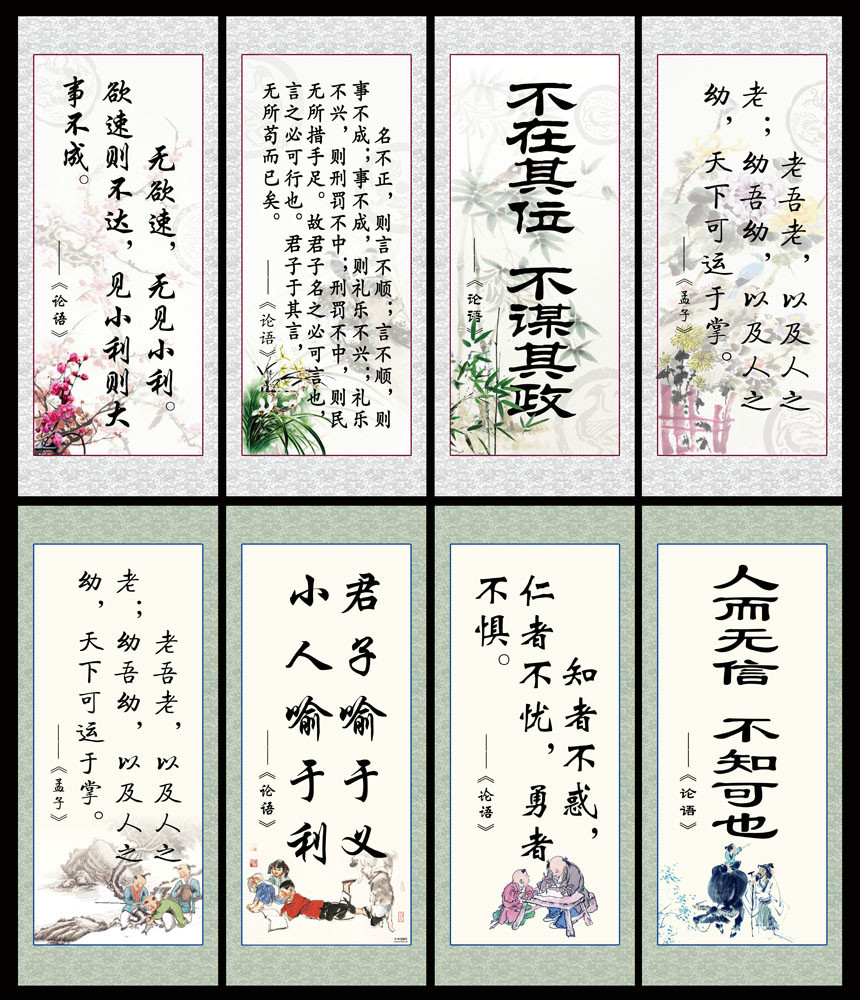 无欲速，无见小利。
欲速则不达，见小利则大
事不成。
——《论语》
名不正，则言不顺；言不顺，则
事不成；事不成，则礼乐不兴；礼乐
不兴，则刑罚不中；刑罚不中，则民
无所措手足。故君子名之必可言也，
言之必可行也。君子于其言，
无所苟而已矣。
——《论语》
不在其位 不谋其政
——《论语》
老吾老，以及人之
老；幼吾幼，以及人之
幼，天下可运于掌。
——《孟子》
老吾老，以及人之
老；幼吾幼，以及人之
幼，天下可运于掌。
——《孟子》
君子喻于义
小人喻于利
——《论语》
知者不惑，
仁者不忧，勇者
不惧。
——《论语》
人而无信 不知可也
——《论语》